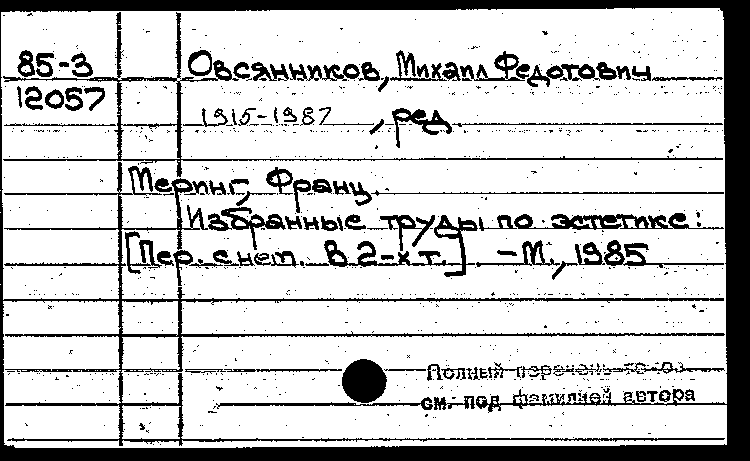 85-3 Овсянников, Михаил Федотович
12057
1915-1987 , ред.
Меринг, Франц.
Избранные труды по эстетике:
[Пер. с нем. В 2-х т.]. - М., 1985
Полный перечень
см. под фамилией автора